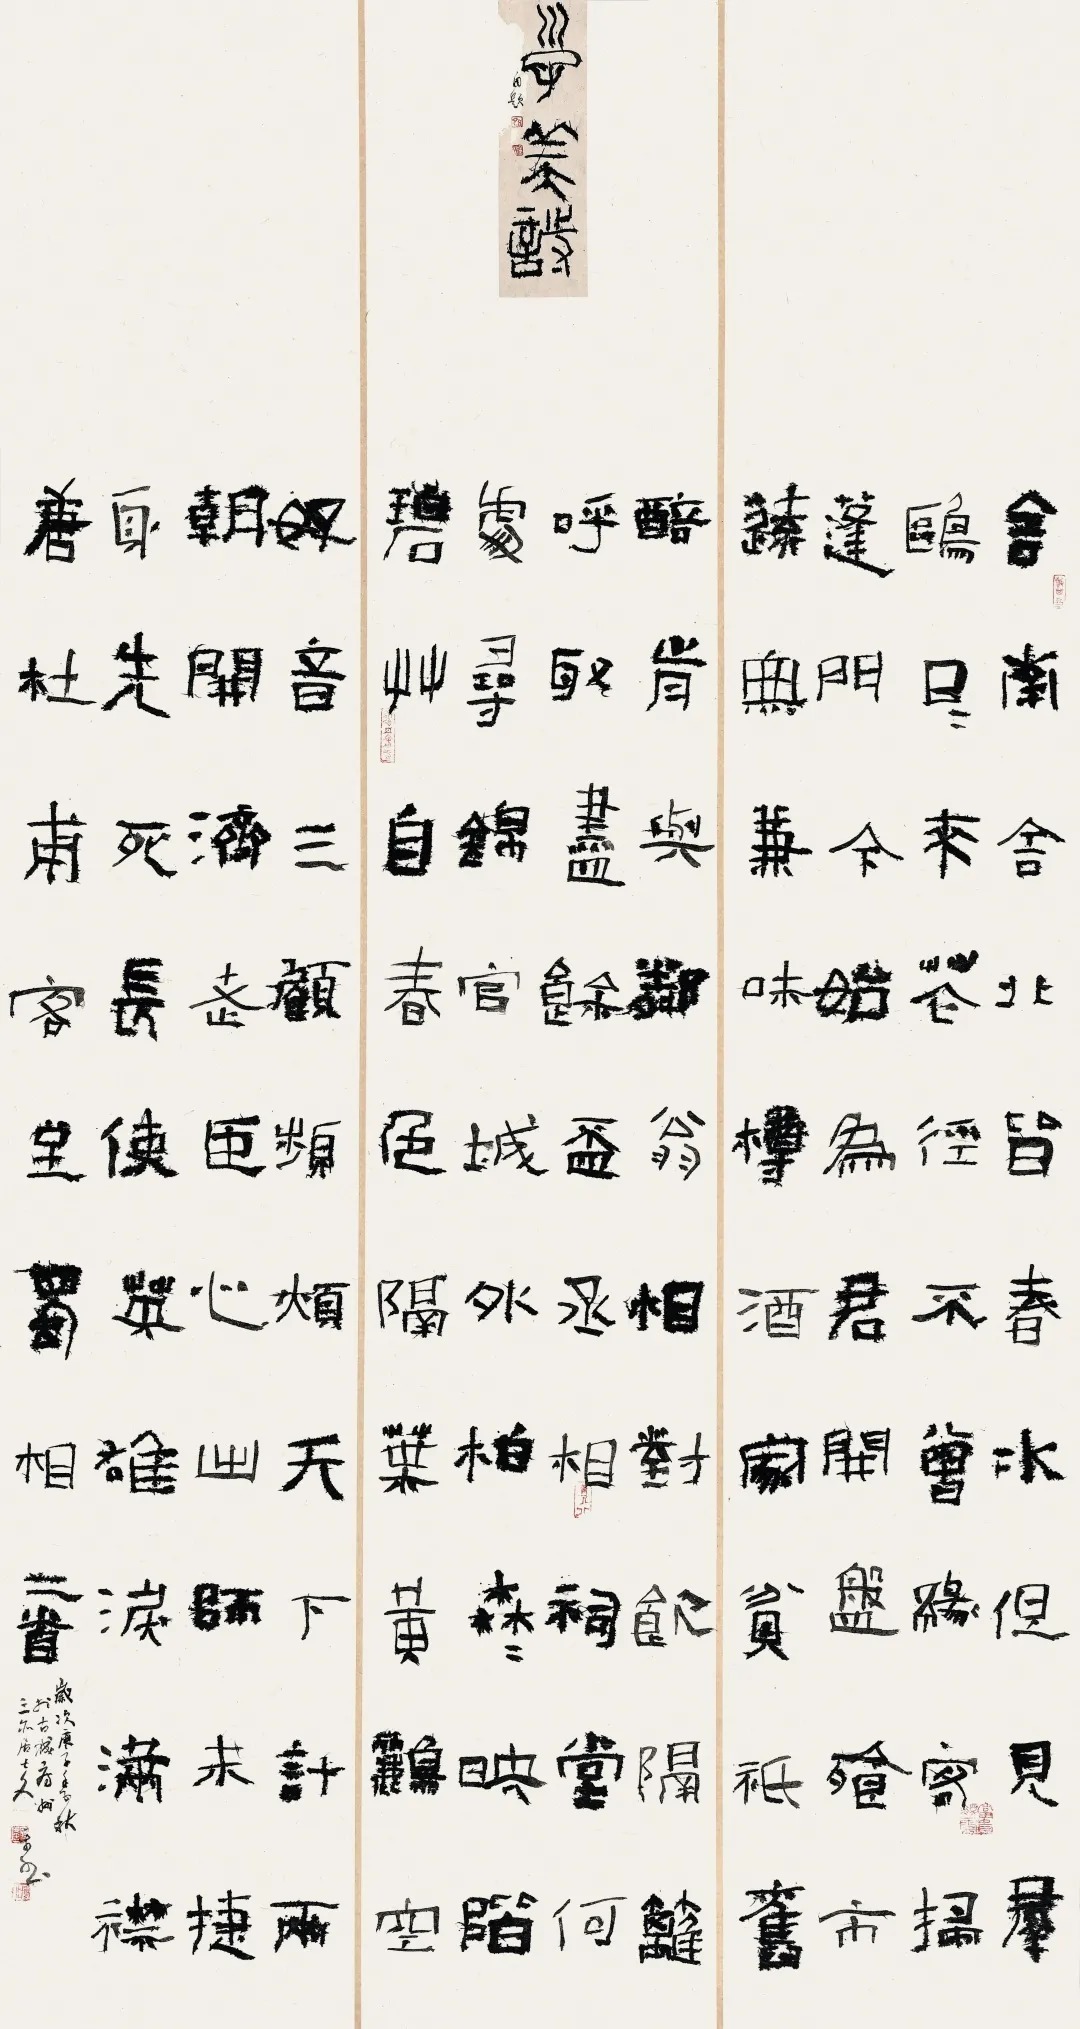 舍南舍北皆春水但見群
鷗日〻來花徑不曾緣客掃
蓬門今始為君開盤飧市
遠無兼味樽酒家貧祇舊
醅肯與鄰翁相對飲隔籬
呼取盡餘盃丞相祠堂何
處尋錦官城外柏森〻映階
碧艸自春色隔葉黃鸝空
好音三顧頻煩天下計兩
朝開濟老臣心出師未捷
身先死長使英雄淚滿襟
唐杜甫客至蜀相二首
歲次庚子季秋